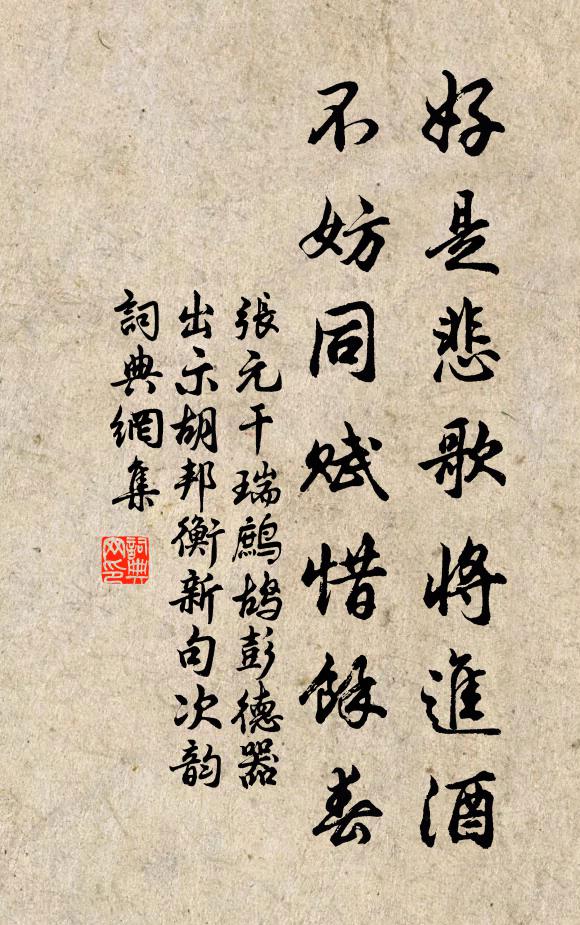 好是悲歌將進酒
不妨同賦惜餘春
張元干瑞鷓鴣彭德器
出示胡邦衡新句次韵
詞典網集
詞典
网印